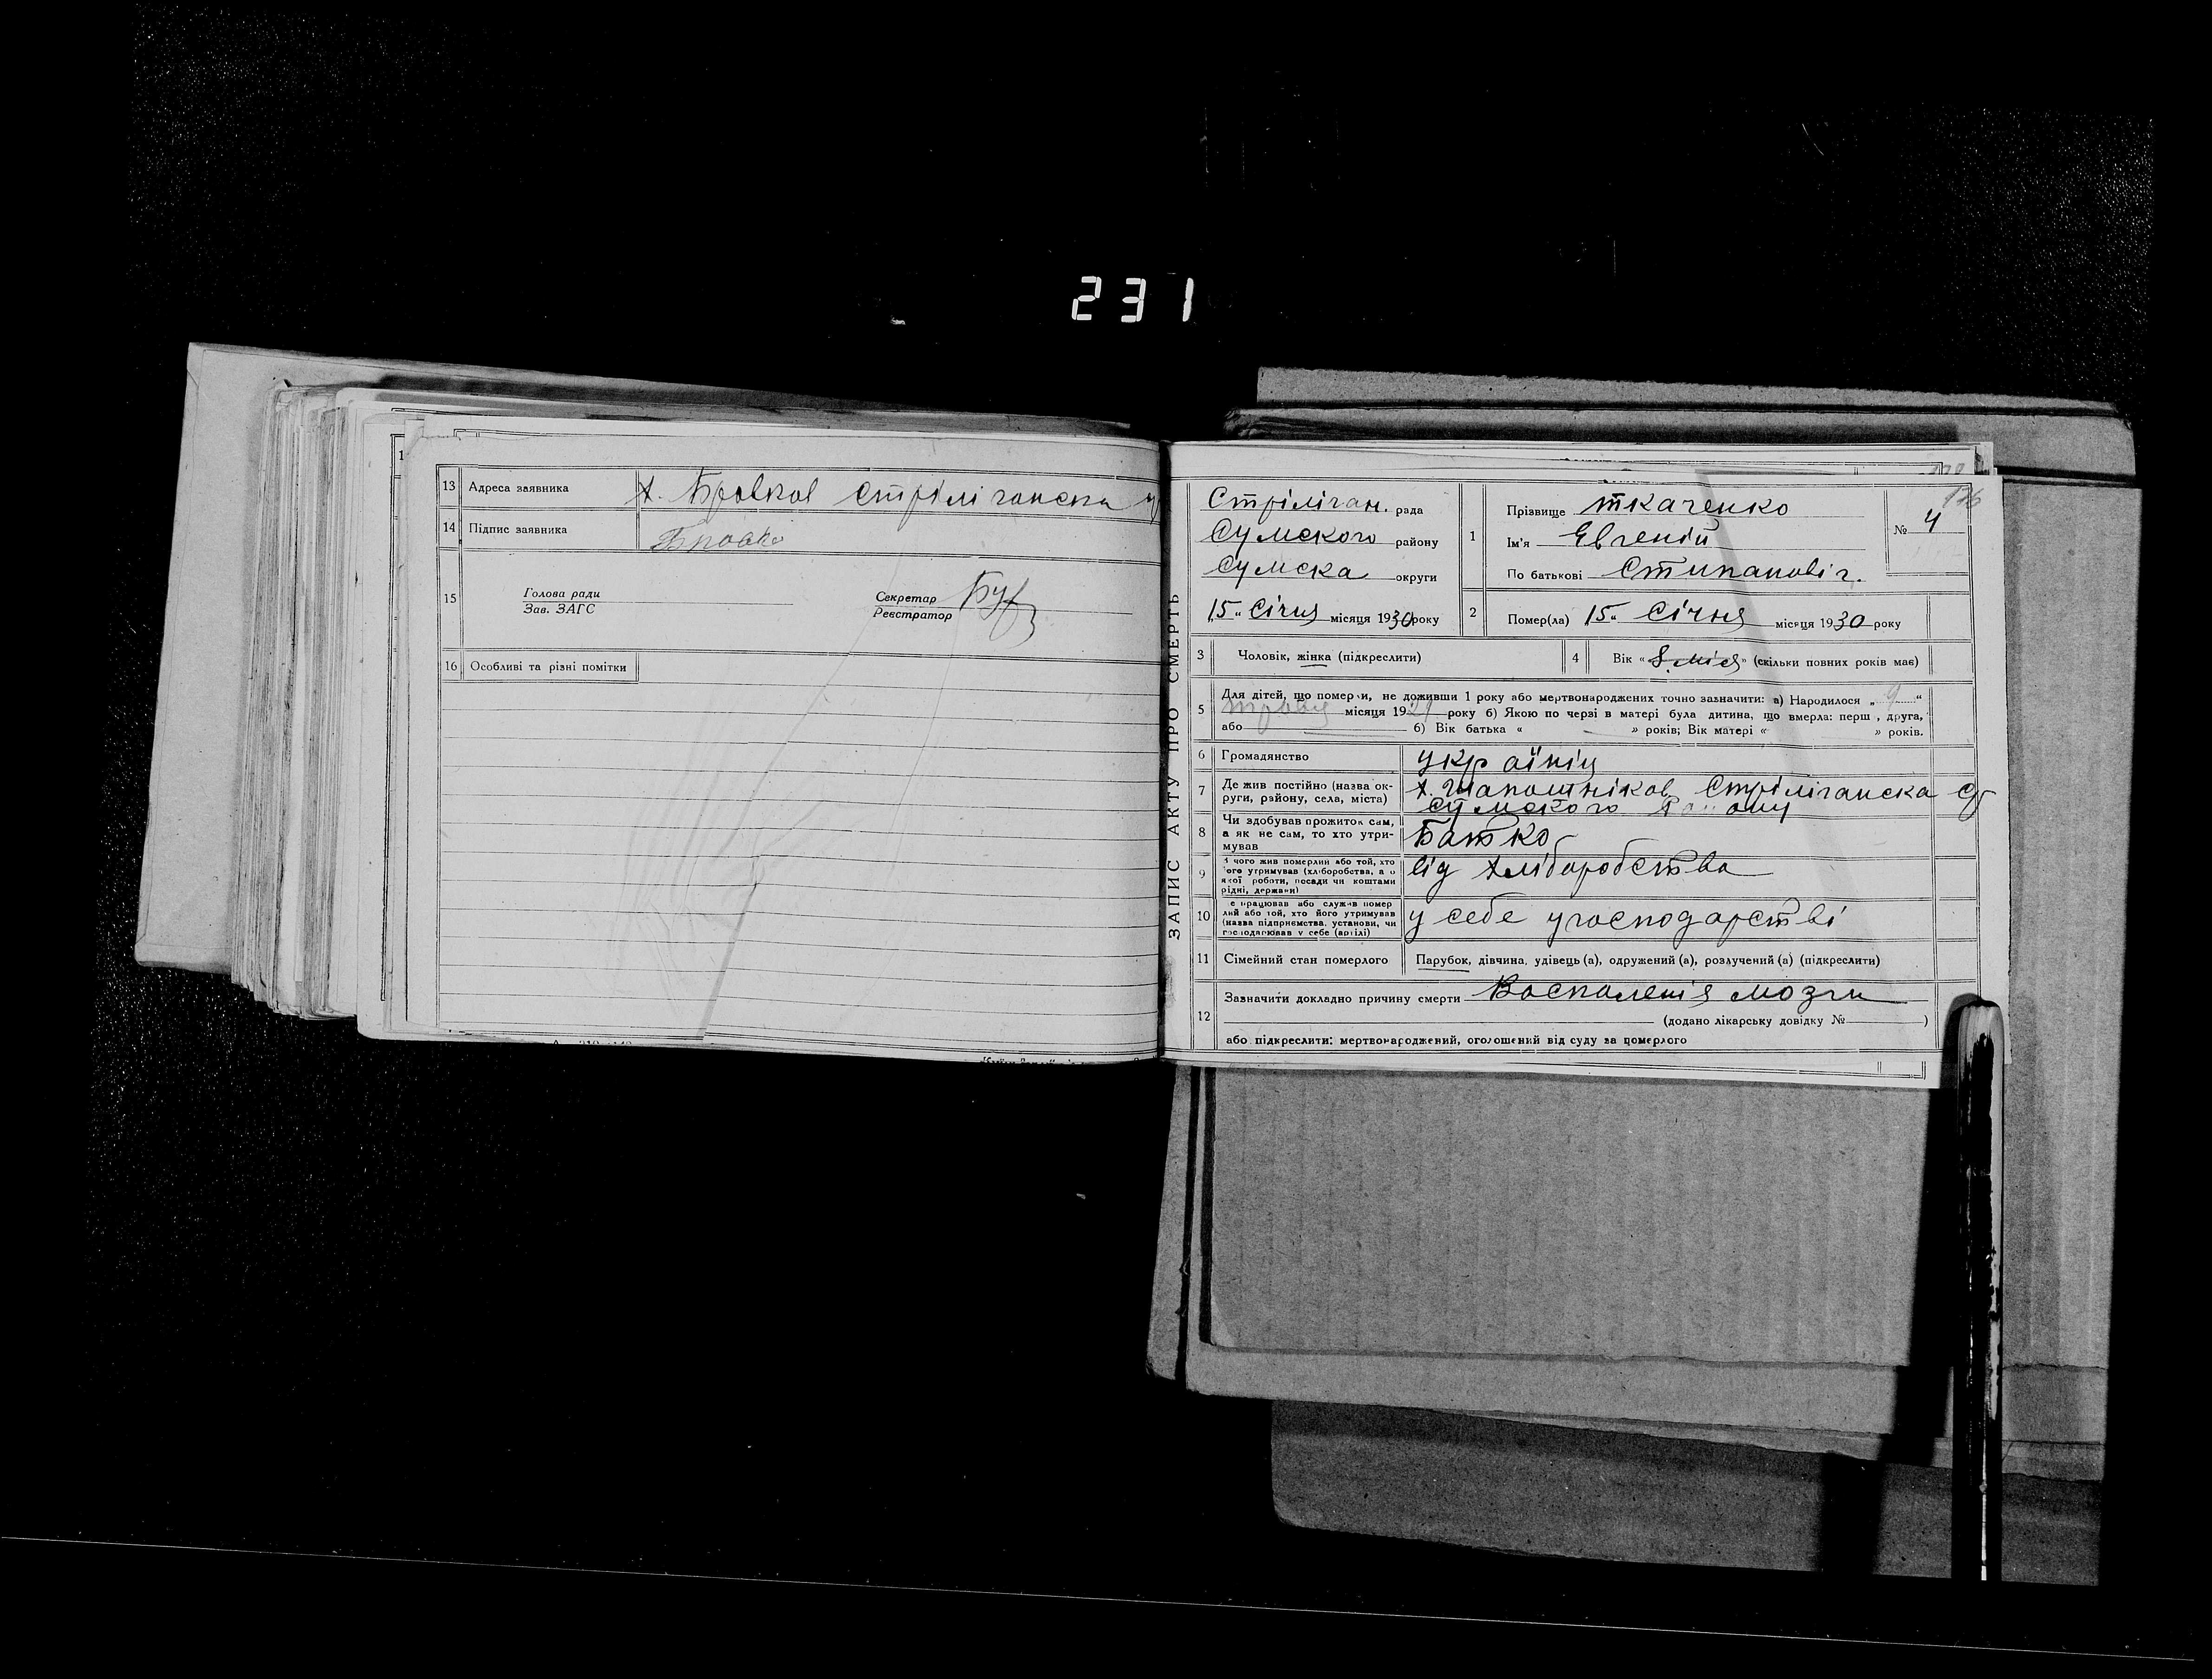 231
13 Адреса заявника х. Бровков Стріліганска
14 Підпис заявника Бровко
15 Голова ради
Зав. ЗАГС
Секретар
Реєстратор
16 Особливі та різні помітки
ЗАПИС АКТУ ПРО СМЕРТЬ
176
Стріліган. рада
Сумского району
Сумска округи
„15„ Січня місяця 1930 року
1 Прізвище ткаченко
Ім'я Евгеній
По батькові Стипанович.
№ 4
2 Помер(ла) 15„ Січня місяця 1930 року
3 Чоловік, жінка (підкреслити)
4 Вік « 8 міся » (скільки повних років має)
5 Для дітей, що померли, не доживши 1 року або мертвонароджених точно зазначити: а) Народилося „ 9 “
травня місяця 1929 року б) Якою по черзі в матері була дитина, що вмерла: перша, друга,
або б) Вік батька « » років; Вік матері « » років.
6 Громадянство україніц
7 Де жив постійно (назва округи, району, села, міста) х. Шапошніков Стріліганска С/
Сумского Району
8 Чи здобував прожиток сам,
а як не сам, то хто утри-
мував Батко
9 З чого жив померлий або той, хто
його утримував (хліборобства, а о
якої роботи, посади чи коштами
рідні, держави) від хліборобства
10 Де працював або служив помер
лий або той, хто його утримував
(назва підприємства, установи, чи
господарював у себе (артілі) у себе угосподарстві
11 Сімейний стан померлого Парубок, дівчина, удівець (а), одружений (а), розлучений (а) (підкреслити)
12 Зазначити докладно причину смерти Воспаленія мозги
(додано лікарську довідку № )
або підкреслити: мертвонароджений, оголошений від суду за померлого